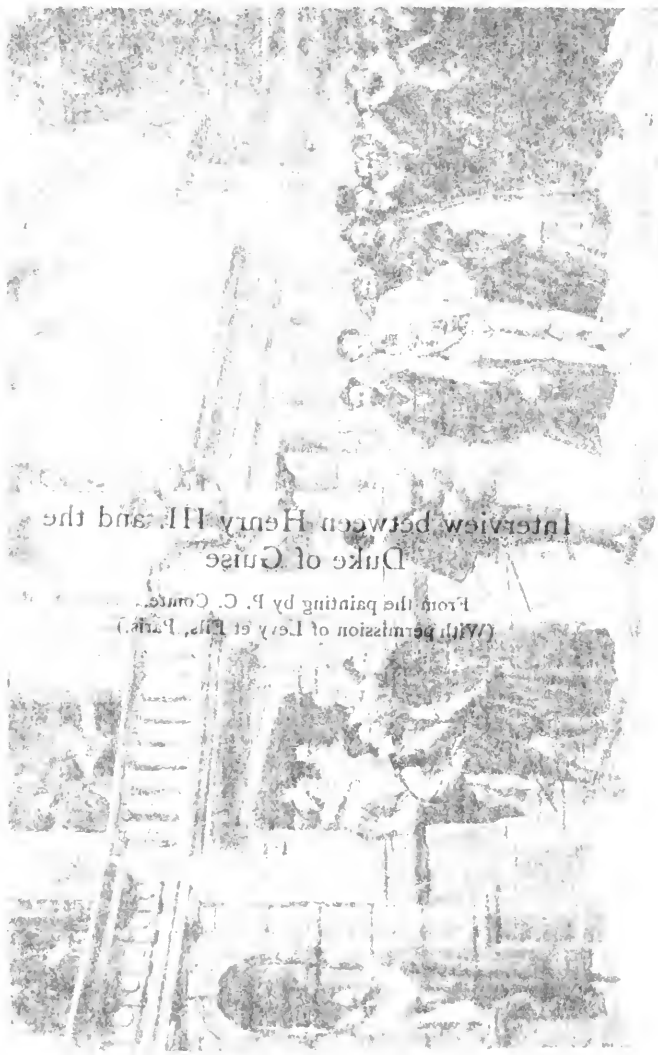 Interview between Henry III. and the
Duke of Guise
From the painting by P. C. Comte.
(With permission of Levy et Fils, Paris.)